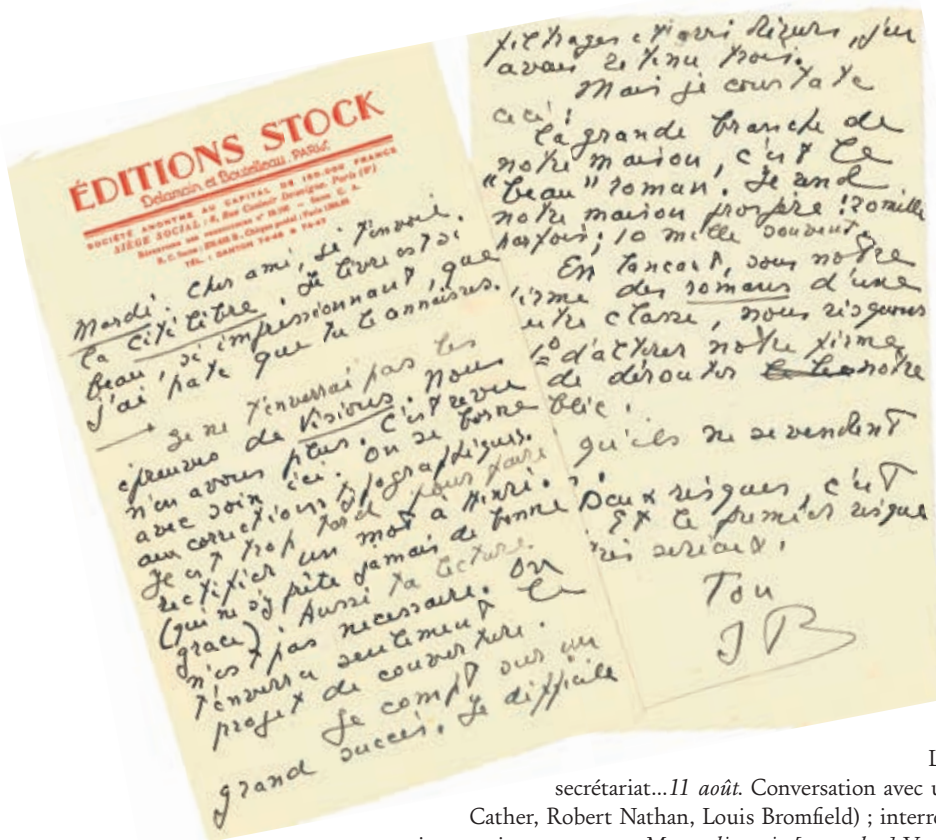 ÉDITIONS STOCK
Delamain et Boutelleau, PARIS
SOCIÉTÉ ANONYME AU CAPITAL DE FRANCS
SIÈGE SOCIAL : Rue Casimir Delavigne, Paris (6ᵉ)
TÉL. : DANTON
Mardi. Cher ami, je t'envoie
la cité libre. Le livre est si
beau, si impressionnant, que
j'ai hâte que tu le connaisses.
Je ne t'enverrai pas les
épreuves de Visions. Nous
n'en avons plus. C'est revu
avec soin ici. On se borne
aux corrections typographiques.
Il est trop tard pour faire
rectifier un mot à Henri.
(qui ne s'y prête jamais de bonne
grace). Aussi ta lecture
n'est pas nécessaire. On
t'enverra seulement le
projet de couverture.
Je compte sur un
grand succès. Le difficile
avais retenu trois.
Mais je constate
ceci :
La grande branche de
notre maison, c'est le
"beau" roman. Je rend
notre maison prospère : 20 mille
parfois ; 10 mille souvent.
En lançant, sous notre
firme des romans d'une
utre classe, nous risquons
1º d'altérer notre firme
de dérouter notre
blic.
qu'ils ne se vendent
Deux risques, c'est
Et le premier risque
rès sérieux.
Ton
JB
L
secrétariat...11 août. Conversation avec u
Cather, Robert Nathan, Louis Bromfield) ; interro